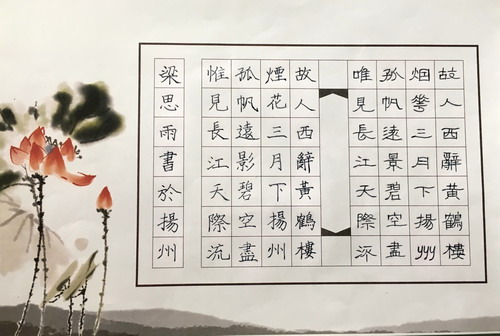 故人西辭黄鶴樓
烟三月下揚州
孤帆遠景碧空盡
唯見長江天際流
故人西辭黃鶴樓
煙花三月下揚州
孤帆遠影碧空盡
惟見長江天際流
梁思雨書於揚州